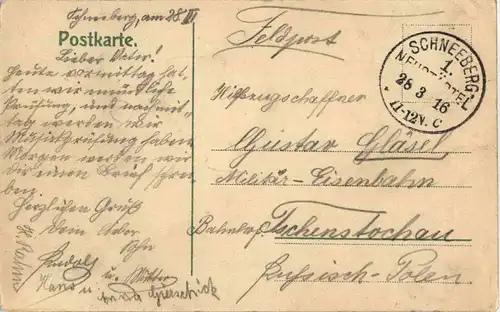 Schneeberg, am 28. III
Postkarte.
Feldpost
Lieber Vater!
Heute vormittag hat-
ten wir mündliche
Prüfung, und nachmit-
tag werden wir
Musikprüfung haben.
Morgen werden wir
dir einen Brief schrei-
ben.
Herzlichen Gruß
Dein lieber
Sohn
Rudolf
u. Mutter
Hans u.
SCHNEEBERG
1.
NEUSTÄDTEL
28 3 16
11-12V. C
Hilfszugschaffner
Gustav Gläsel
Militär-Eisenbahn
Bahnhof Tschenstochau
Russisch-Polen